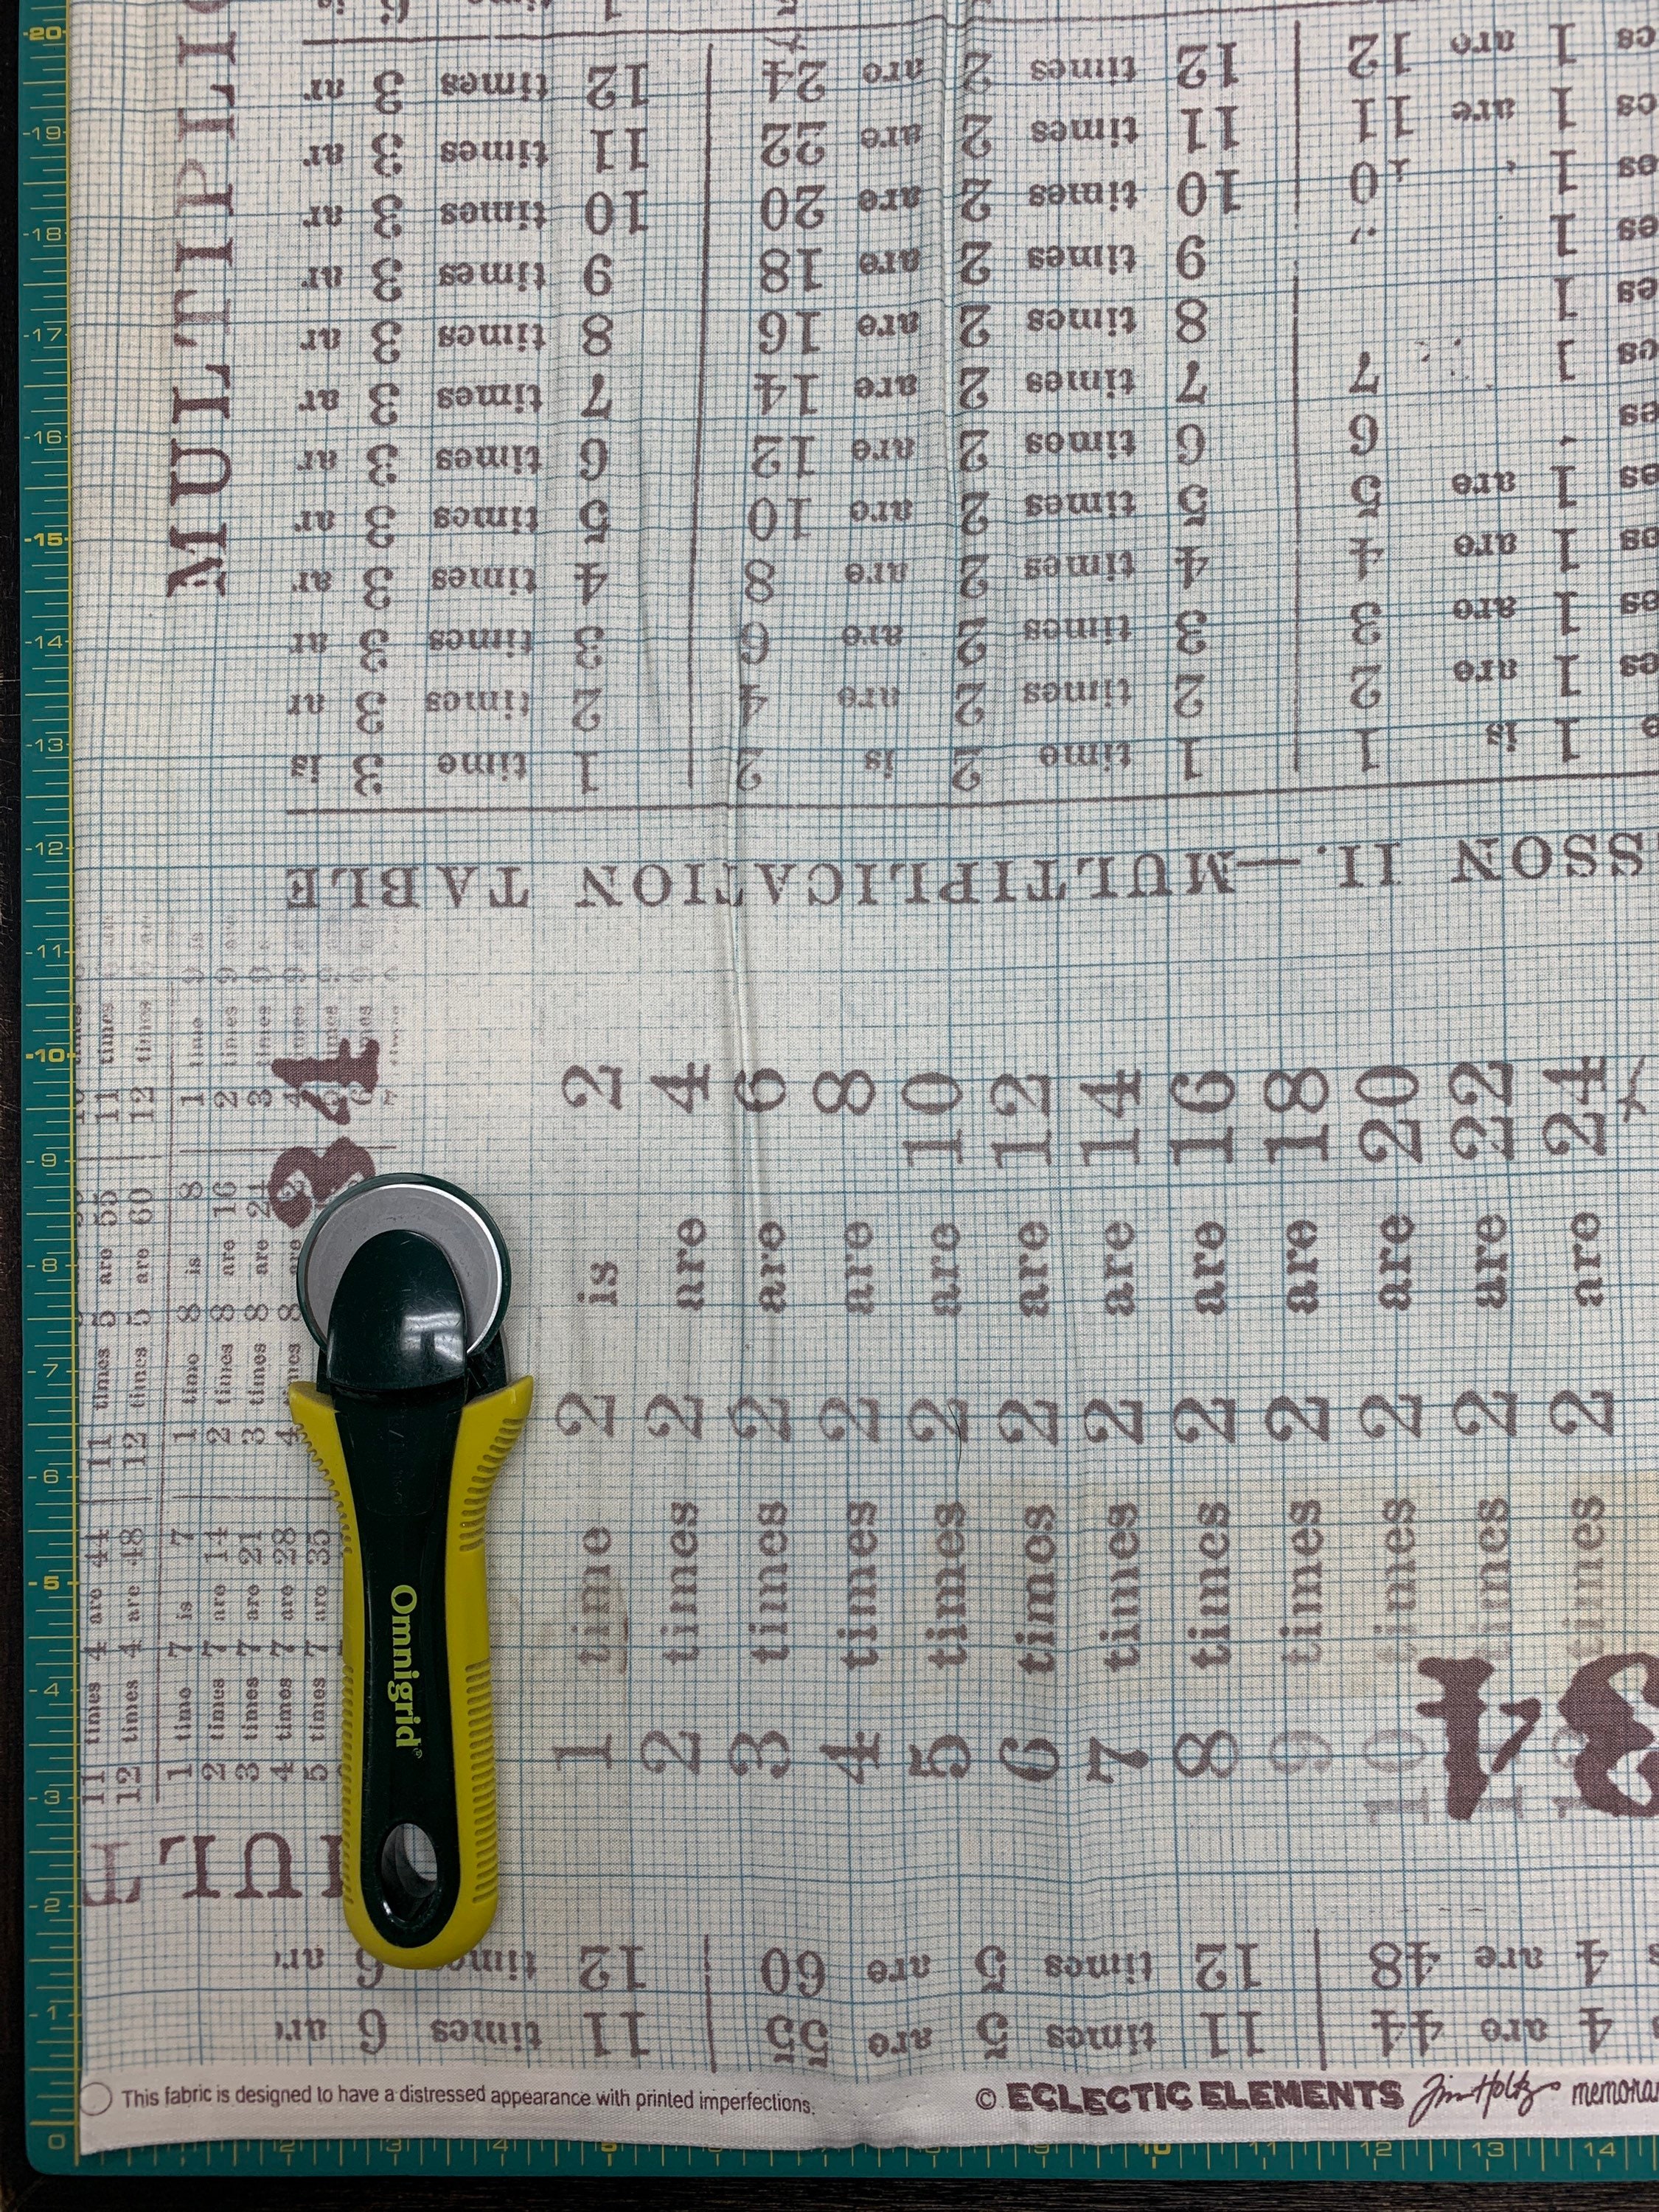 20
19
18
17
16
15
14
13
12
11
10
9
8
7
6
5
4
3
2
1
0
MULTIPLIC
SSON II.—MULTIPLICATION TABLE
e 1 is 1 1 time 2 is 2 1 time 3 is
es 1 are 2 2 times 2 are 4 2 times 3 ar
es 1 are 3 3 times 2 are 6 3 times 3 ar
es 1 are 4 4 times 2 are 8 4 times 3 ar
es 1 are 5 5 times 2 are 10 5 times 3 ar
es 6 6 times 2 are 12 6 times 3 ar
es 1 7 7 times 2 are 14 7 times 3 ar
es 1 8 times 2 are 16 8 times 3 ar
es 1 9 times 2 are 18 9 times 3 ar
es 1 10 times 2 are 20 10 times 3 ar
es 1 are 11 11 times 2 are 22 11 times 3 ar
es 1 are 12 12 times 2 are 24 12 times 3 ar
11 times 4 are 44 11 times 5 are 55 11 times
12 times 4 are 48 12 times 5 are 60 12 times
1 time 7 is 7 1 time 8 is 8 1 time 9 is
2 times 7 are 14 2 times 8 are 16 2 times 9 are
3 times 7 are 21 3 times 8 are 24 3 times 9
4 times 7 are 28 4 times 8 are 4 times 9
5 times 7 are 35
34
1 time 2 is 2
2 times 2 are 4
3 times 2 are 6
4 times 2 are 8
5 times 2 are 10
6 times 2 are 12
7 times 2 are 14
8 times 2 are 16
9 times 2 are 18
10 times 2 are 20
11 times 2 are 22
12 times 2 are 24
34
Omnigrid®
MULT
4 are 44 11 times 5 are 55 11 times 6 are
s 4 are 48 12 times 5 are 60 12 times 6 are
This fabric is designed to have a distressed appearance with printed imperfections.
© ECLECTIC ELEMENTS Tim Holtz memoran
2 3 4 5 9 10 11 12 13 14